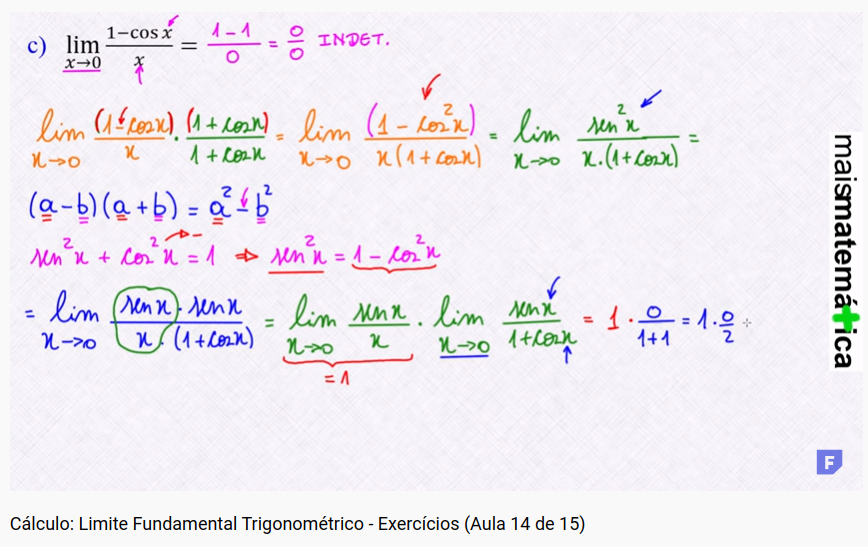 c) lim x→0 (1−cos x)/x = (1−1)/0 = 0/0 INDET.
lim x→0 (1−cosx)/x · (1+cosx)/(1+cosx) = lim x→0 (1−cos²x)/(x(1+cosx)) = lim x→0 sen²x/(x.(1+cosx)) =
(a−b)(a+b) = a²−b²
sen²x + cos²x = 1 ⇒ sen²x = 1−cos²x
= lim x→0 (senx · senx)/(x · (1+cosx)) = lim x→0 senx/x · lim x→0 senx/(1+cosx) = 1 · 0/(1+1) = 1·0/2
= 1
maismatemática
F
Cálculo: Limite Fundamental Trigonométrico - Exercícios (Aula 14 de 15)